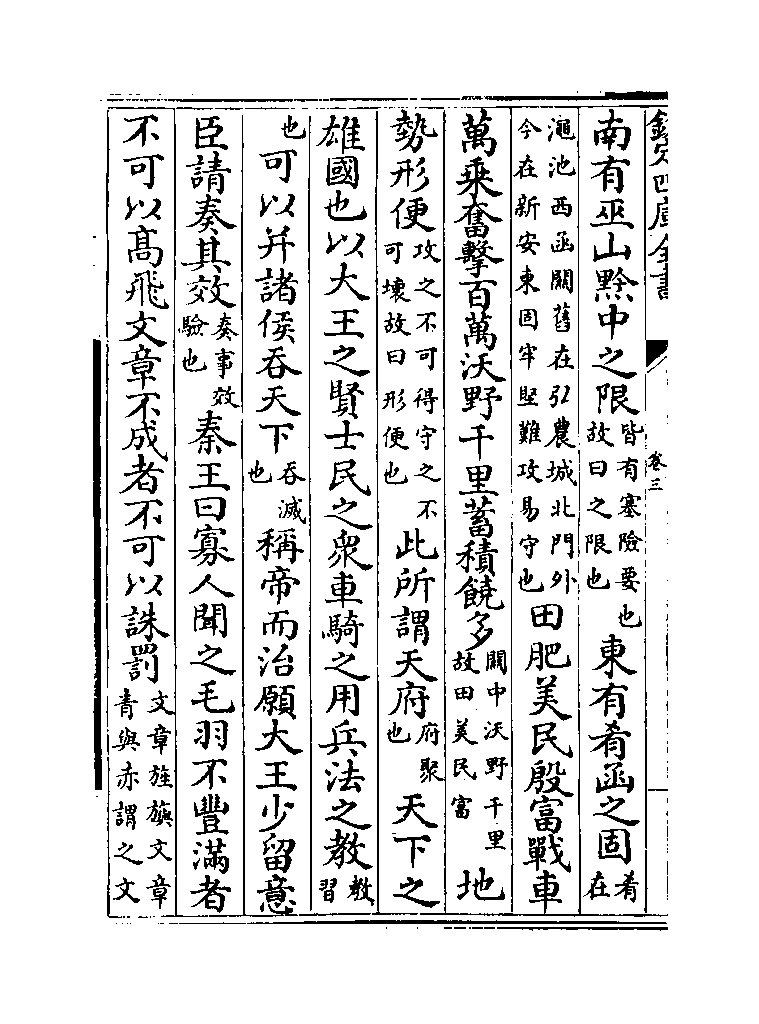 欽定四庫全書
卷三
南有巫山黔中之限皆有塞險要也故曰之限也東有肴函之固肴在
澠池西函關舊在弘農城北門外今在新安東固牢堅難攻易守也田肥美民殷富戰車
萬乘奮擊百萬沃野千里蓄積饒多關中沃野千里故田美民富地
勢形便攻之不可得守之不可壞故曰形便也此所謂天府府聚也天下之
雄國也以大王之賢士民之衆車騎之用兵法之教教習
也可以并諸侯吞天下吞滅也稱帝而治願大王少留意
臣請奏其效奏事效驗也秦王曰寡人聞之毛羽不豐滿者
不可以高飛文章不成者不可以誅罰文章旌旗文章青與赤謂之文